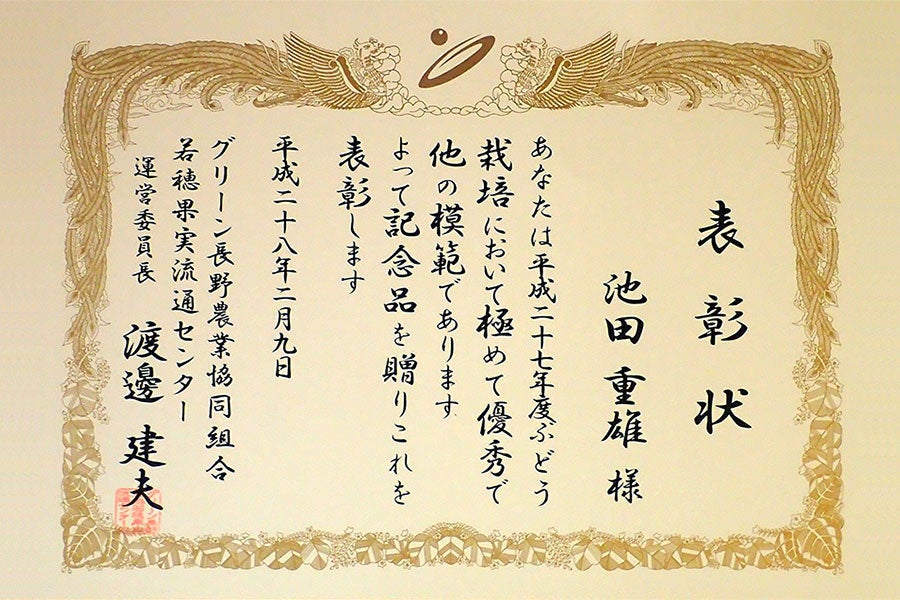 表彰状
池田重雄様
あなたは平成二十七年度ぶどう
栽培において極めて優秀で
他の模範であります
よって記念品を贈りこれを
表彰します
平成二十八年二月九日
グリーン長野農業協同組合
若穂果実流通センター
運営委員長 渡邊建夫